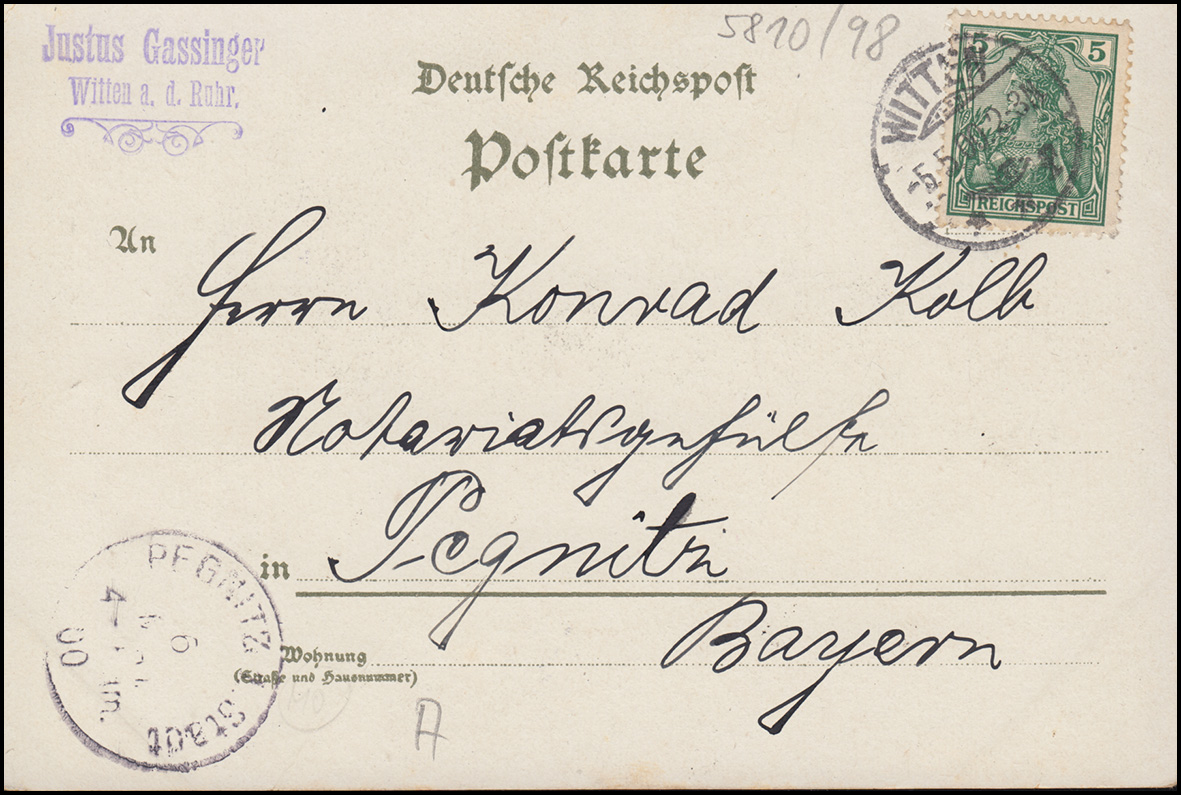 5810/98
Justus Gassinger
Witten a. d. Ruhr.
Deutsche Reichspost
Postkarte
5 5
REICHSPOST
WITTEN
1
An
Herrn Konrad Kolb
Notariatsgehülfe
in Pegnitz
Bayern
Wohnung
(Straße und Hausnummer)
PEGNITZ Stadt
6
4
00
A